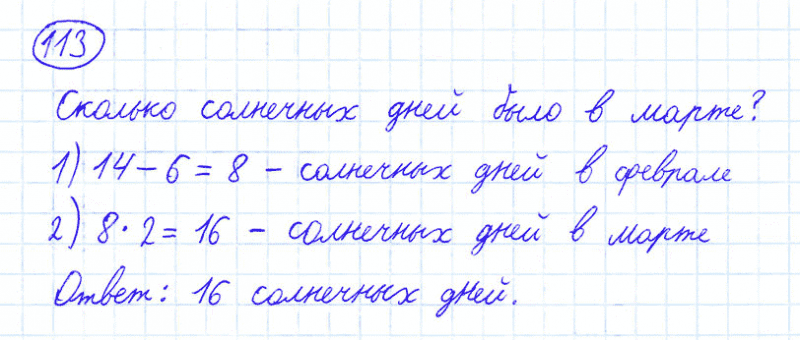 113
Сколько солнечных дней было в марте?
1) 14 - 6 = 8 - солнечных дней в феврале
2) 8 · 2 = 16 - солнечных дней в марте
Ответ: 16 солнечных дней.